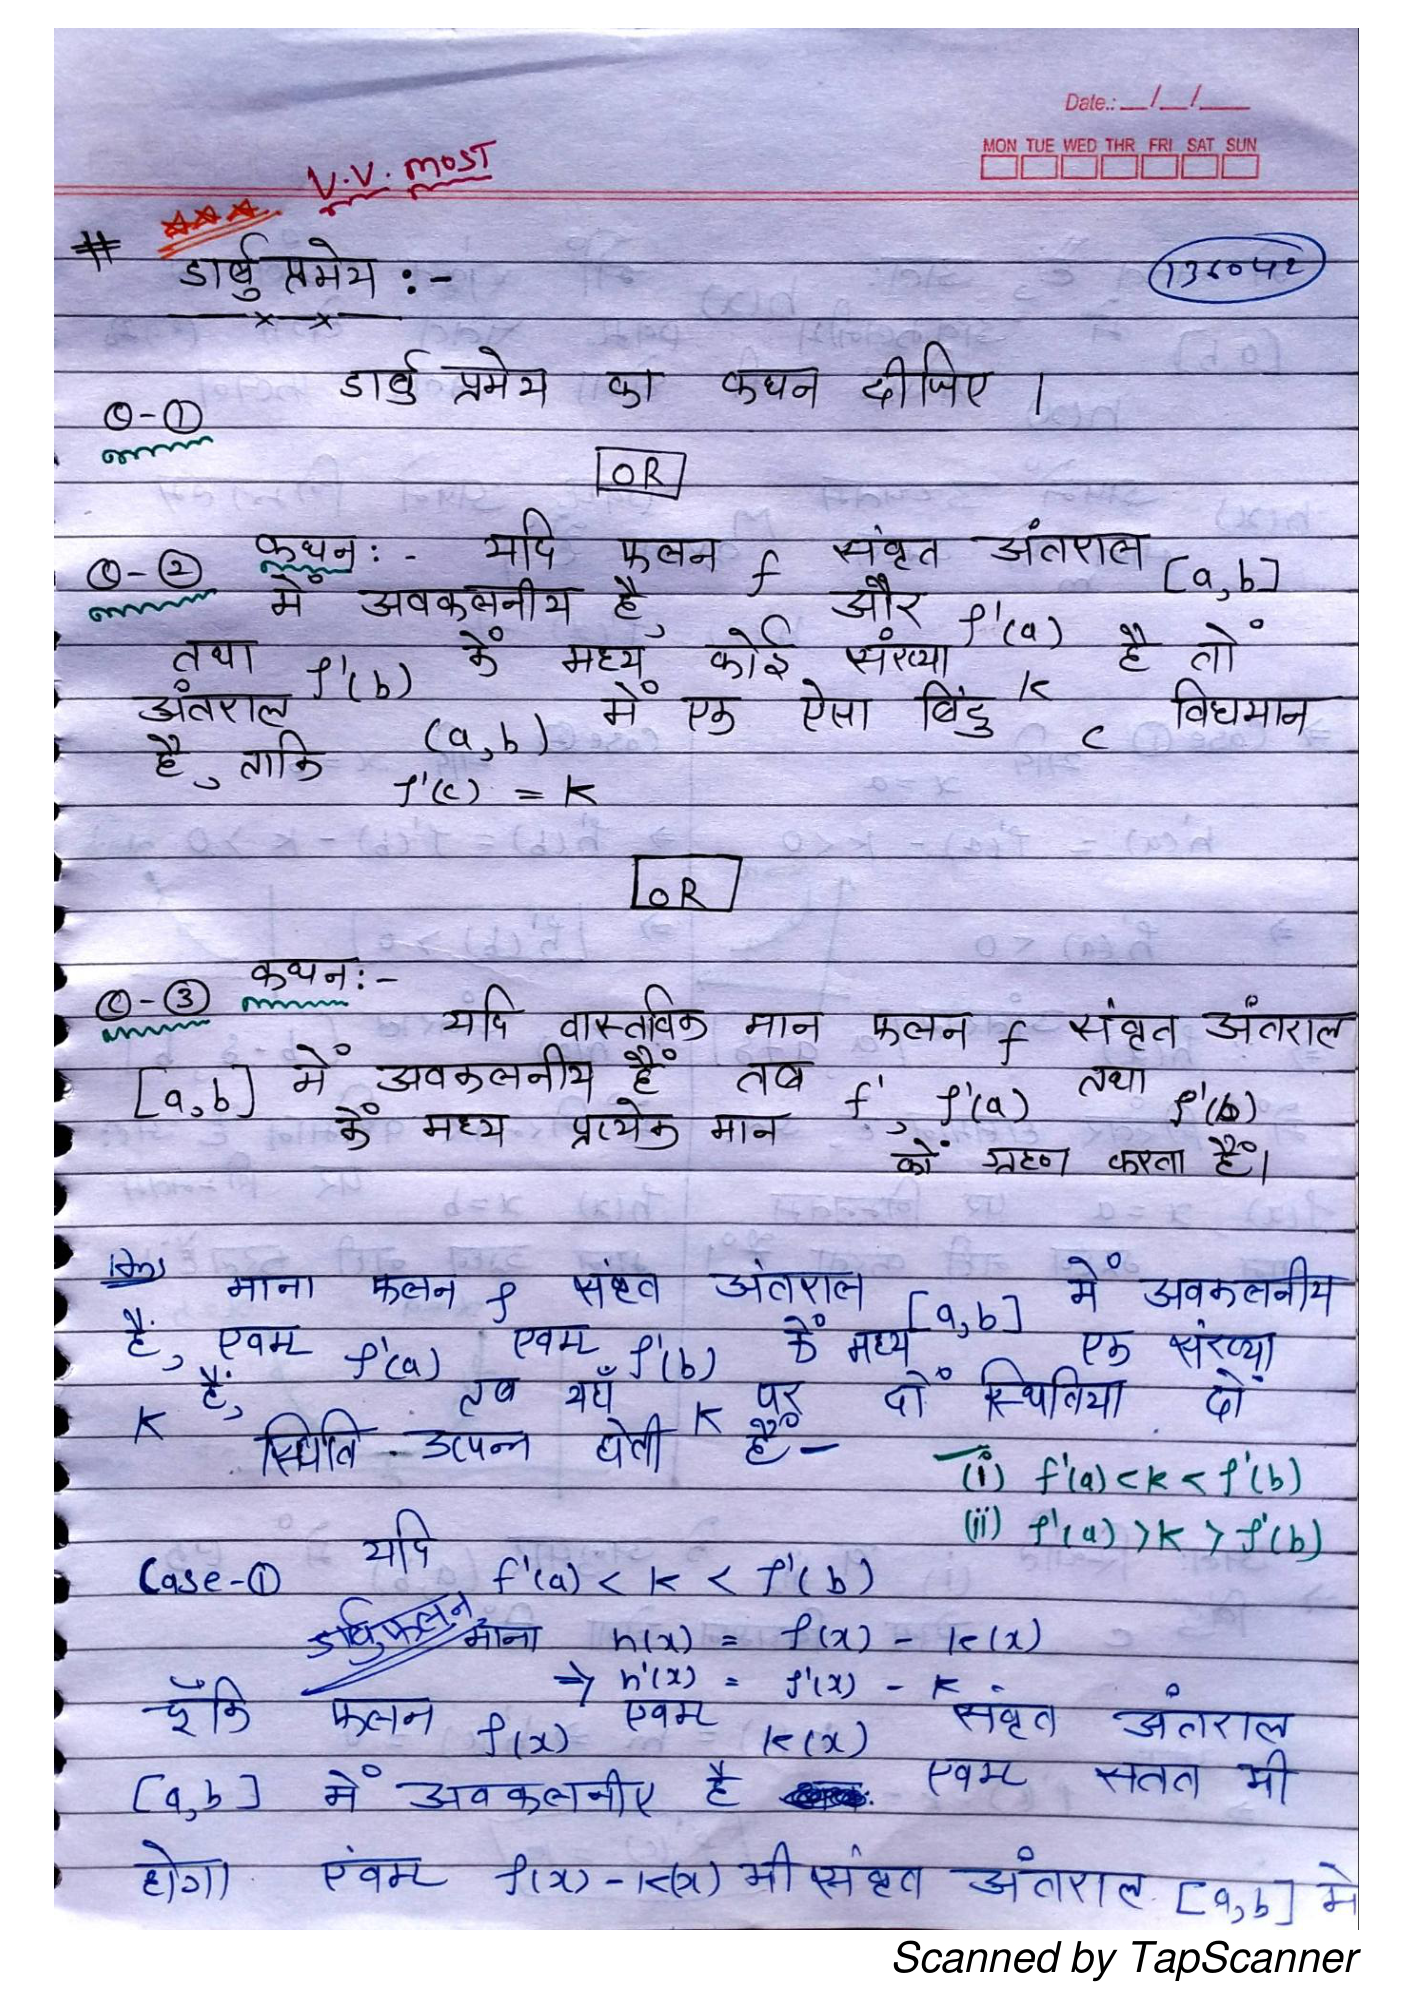 Date.: __/__/__
MON TUE WED THR FRI SAT SUN
V.V. MOST
# डार्बु प्रमेय :-
डार्बु प्रमेय का कथन दीजिए ।
Q-①
OR
Q-② कथन :- यदि फलन f संवृत अंतराल [a,b]
में अवकलनीय है, और f'(a)
तथा f'(b) कें मध्य कोई संख्या k है तों
अंतराल (a,b) में एक ऐसा बिंदु c विधमान
है, ताकि f'(c) = k
OR
Q-③ कथन :-
यदि वास्तविक मान फलन f संवृत अंतराल
[a,b] में अवकलनीय हैं तब f', f'(a) तथा f'(b)
कें मध्य प्रत्येक मान कों ग्रहण करता हैं।
Ans माना फलन f संवृत अंतराल [a,b] में अवकलनीय
हैं, एवम f'(a) एवम f'(b) कें मध्य एक संख्या
k हैं, तब यहाँ k पर दों स्थितिया दों
स्थिति उत्पन्न होती हैं -
(i) f'(a) < k < f'(b)
(ii) f'(a) > k > f'(b)
Case-① यदि f'(a) < k < f'(b)
माना h(x) = f(x) - k(x)
⇒ h'(x) = f'(x) - k
चूँकि फलन f(x) एवम k(x) संवृत अंतराल
[a,b] में अवकलनीए है एवम सतत भी
होगा एंवम f(x) - k(x) भी संवृत अंतराल [a,b] मे
Scanned by TapScanner